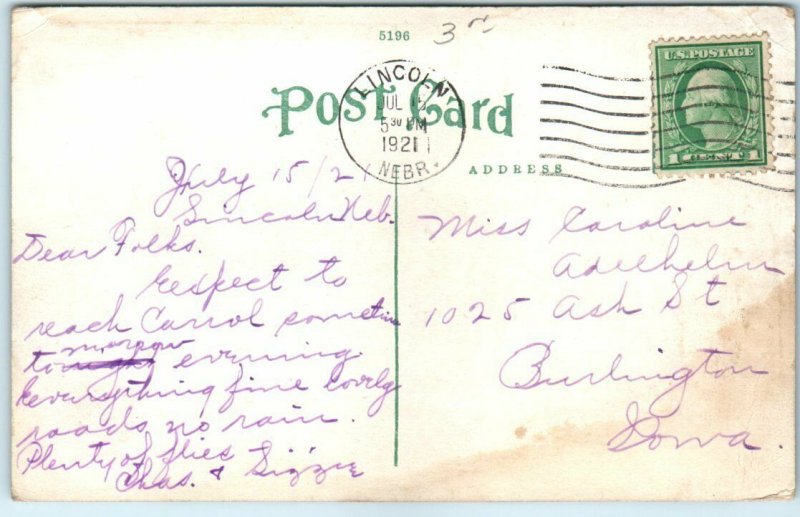 5196
3
LINCOLN
JUL 15
5 30 PM
1921
NEBR.
U.S. POSTAGE
1 CENT 1
Post Card
ADDRESS
July 15/21
Lincoln Neb.
Dear Folks.
Expect to
reach Carrol sometime
tomorrow evening.
Everything fine lovely
roads no rain.
Plenty of flies
Chas. & Lizzie
Miss Caroline
Adelhelm
1025 Ash St
Burlington
Iowa.